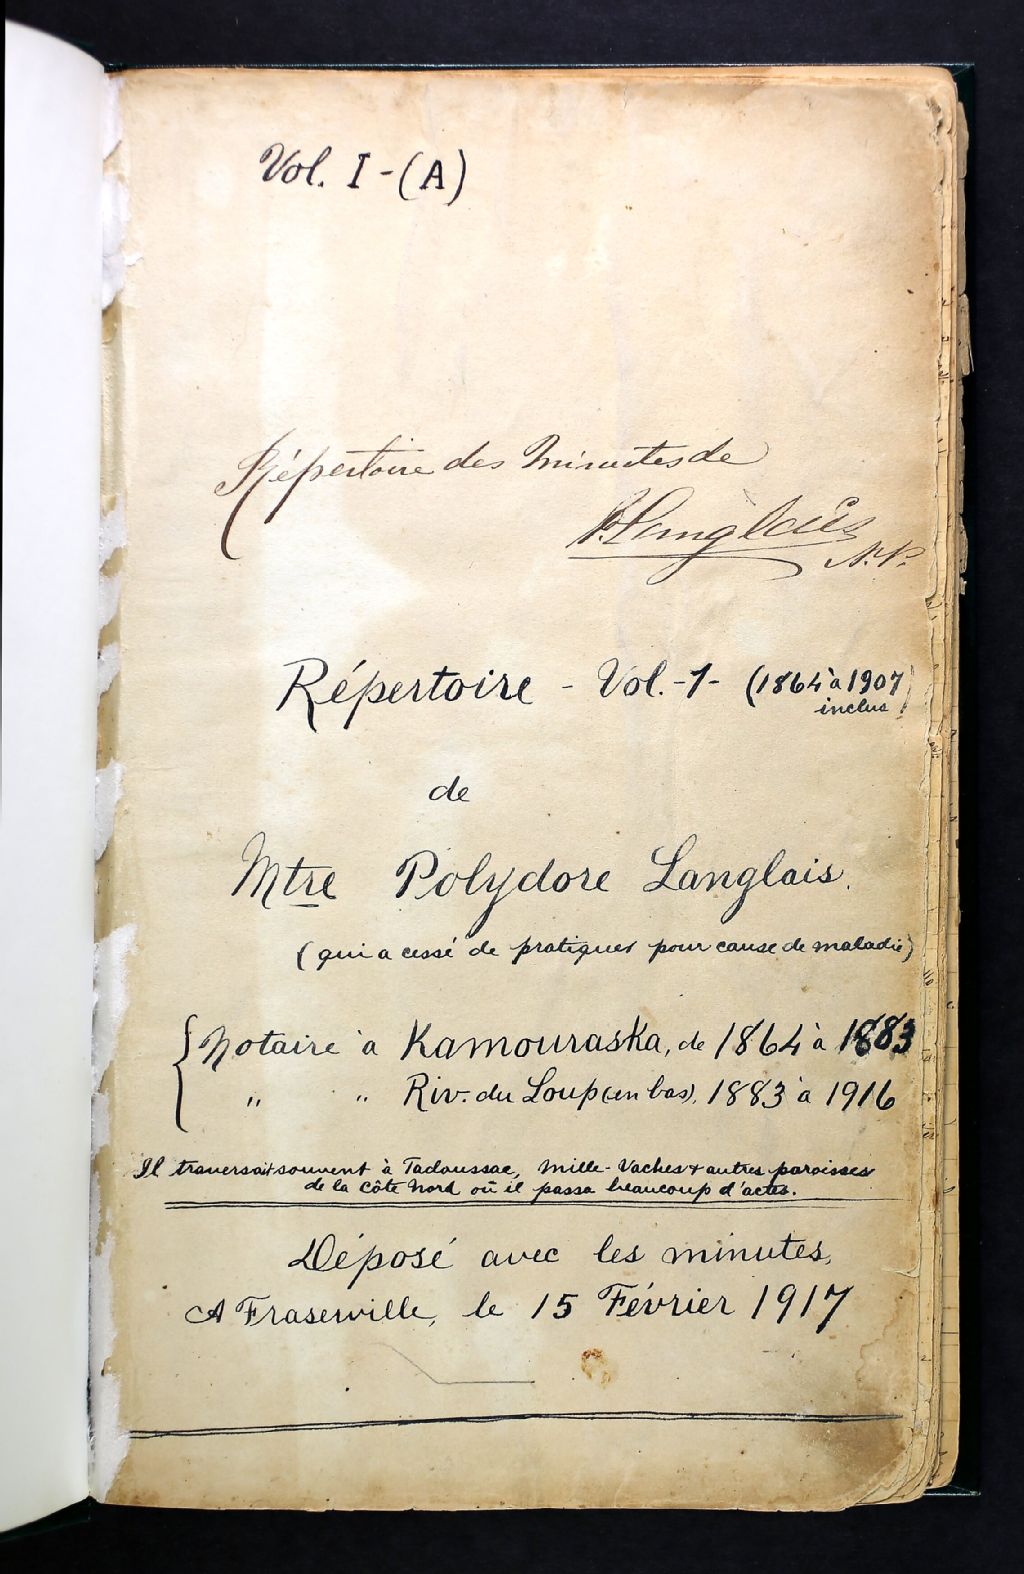 Vol. I - (A)
Répertoire des Minutes de
P. Langlais
N.P.
Répertoire - Vol. -1- (1864 à 1907
inclus)
de
Mtre Polydore Langlais.
(qui a cessé de pratiquer pour cause de maladie)
{ Notaire à Kamouraska, de 1864 à 1883
" " Riv. du Loup (en bas), 1883 à 1916
Il traversait souvent à Tadoussac, Mille-Vaches & autres paroisses
de la Côte Nord où il passa beaucoup d'actes.
Déposé avec les minutes,
A Fraserville, le 15 Février 1917